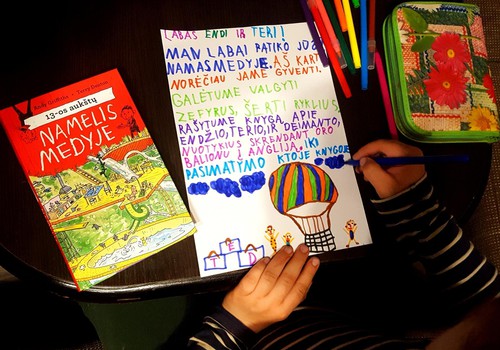 Andy Griffiths
Terry Denton
13-os aukštų
NAMELIS
MEDYJE
LABAS ENDI IR TERI!
MAN LABAI PATIKO JŪSŲ
NAMAS MEDYJE. AŠ KART
NORĖČIAU JAME GYVENTI.
GALĖTUME VALGYTI
ZEFYRUS, ŠERTI RYKLIUS,
RAŠYTUME KNYGĄ APIE
ENDŽIO, TERIO, IR DEIMANTO,
NUOTYKIUS SKRENDANT ORO
BALIONU Į ANGLIJĄ. IKI
PASIMATYMO KITOJE KNYGOJE
T E D